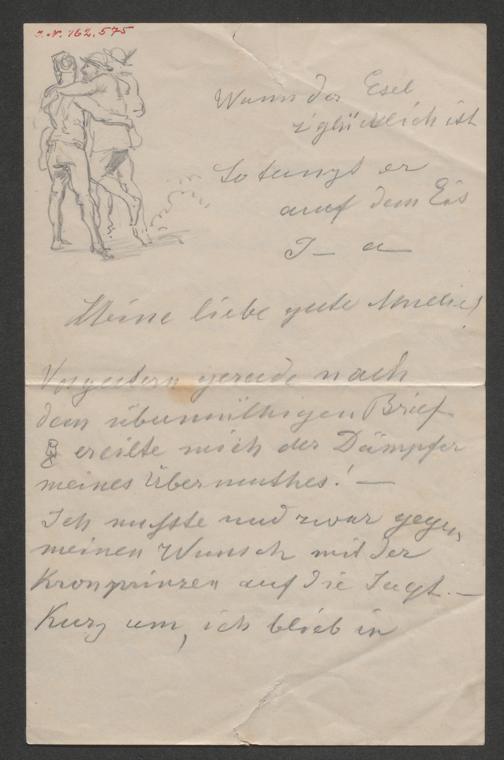 J. N. 162.575
Wann der Esel
z'glücklich ist
So tanzt er
auf dem Eis
I — a —
Meine liebe gute Amelie!
Vorgestern gerade nach
dem übermüthigen Brief
ereilte mich der Dämpfer
meines Übermuthes! —
Ich musste und zwar gegen
meinen Wunsch mit der
Kronprinzen auf die Jagt. —
Kurz um, ich blieb in